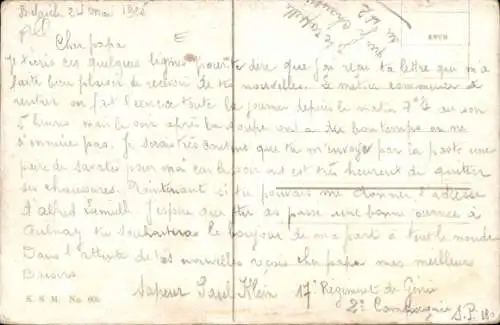 Belgien 24 mai 1925
Cher papa
Je t'écris ces quelques lignes pour te dire que j'ai reçu ta lettre qui m'a
faite bien plaisir de recevoir de tes nouvelles. Le métier commence à
rentrer on fait l'exercice toute la journée depuis le matin 7h½ au soir
5 heures mais le soir après la soupe on a du bon temps on ne
s'ennuie pas. Je serais très content que tu m'envoye par la poste une
paire de savates pour moi car le soir on est très heureux de quitter
ses chaussures. Maintenant si tu pouvais me donner l'adresse
d'alfred Famille J'espère que tu as passé une bonne journée à
Aulnay tu souhaiteras le bonjour de ma part à tout le monde
Dans l'attente de tes nouvelles reçois cher papa mes meilleurs
Baisers
Sapeur Paul Klein 17e Régiment de Génie
2e Compagnie S.P.
K. S. M. No. 60